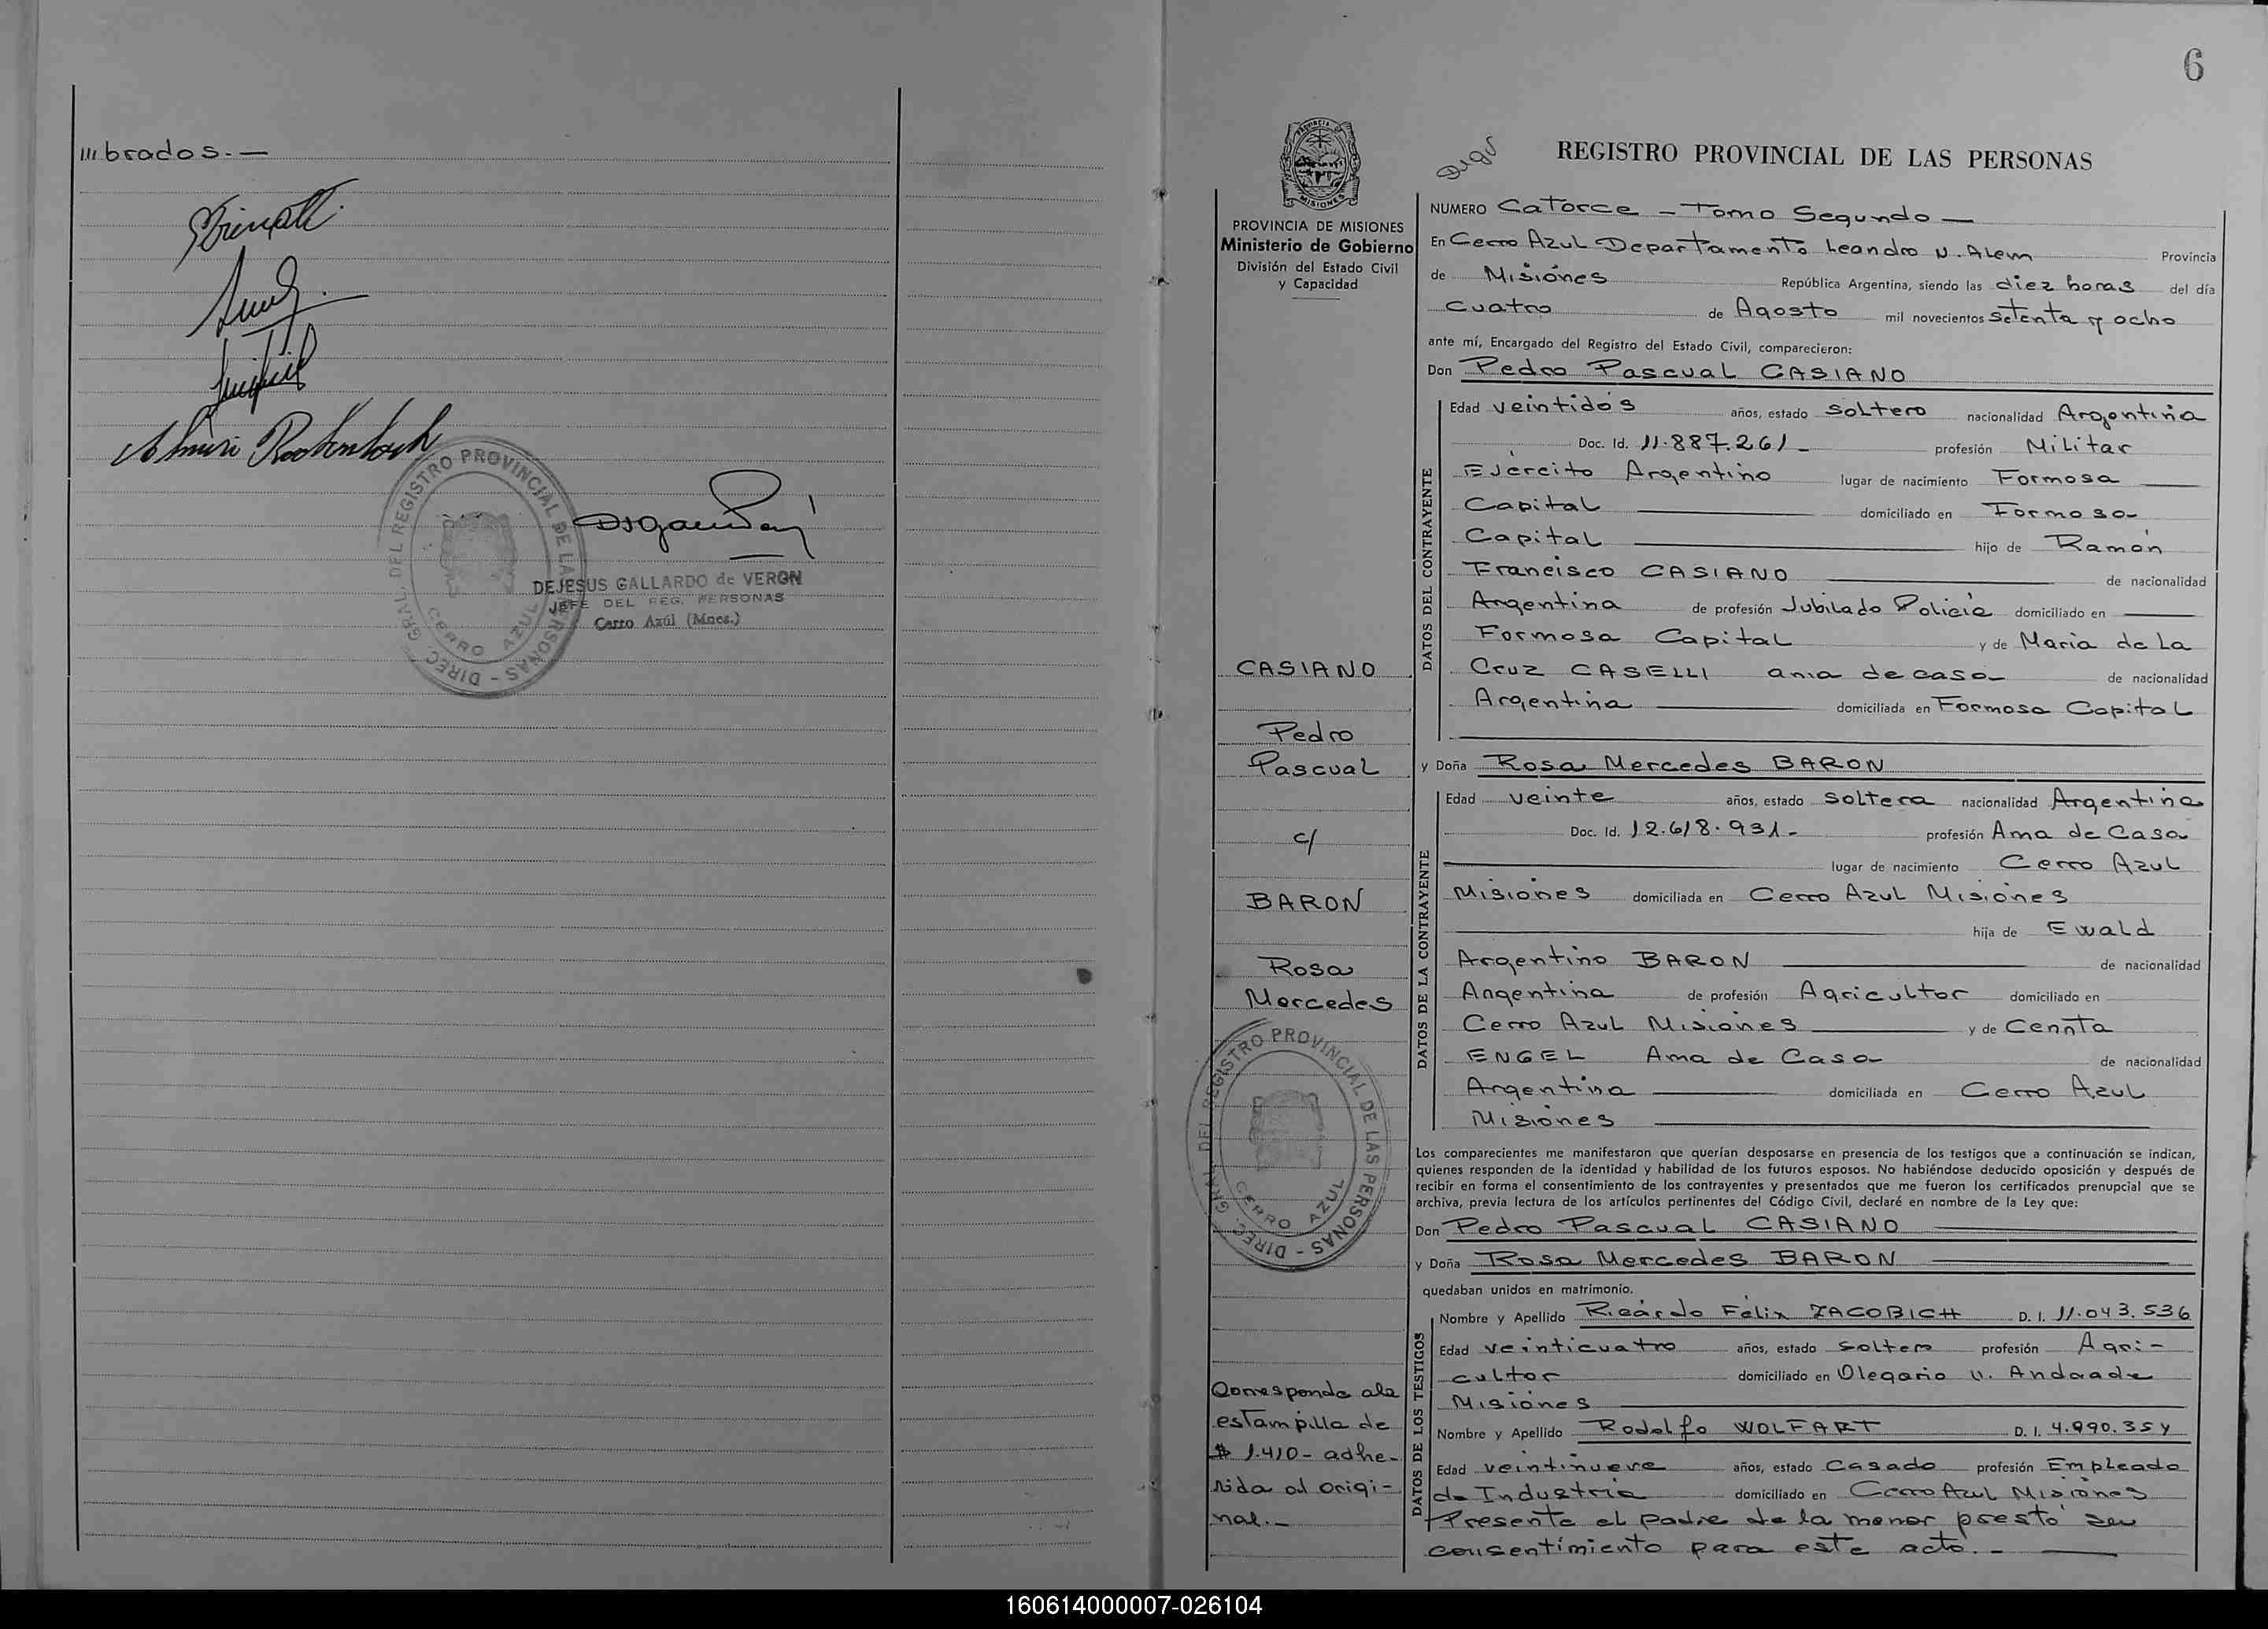 brados.-
DIREC. GRAL. DEL REGISTRO PROVINCIAL DE LAS PERSONAS -
CERRO AZUL
DEJESUS GALLARDO de VERON
JEFE DEL REG. PERSONAS
Cerro Azúl (Mnes.)
6
PROVINCIA
MISIONES
PROVINCIA DE MISIONES
Ministerio de Gobierno
División del Estado Civil
y Capacidad
CASIANO
Pedro
Pascual
c/
BARON
Rosa
Mercedes
DIREC. GRAL. DEL REGISTRO PROVINCIAL DE LAS PERSONAS -
CERRO AZUL
Corresponde ala
estampilla de
$ 1.410- adhe-
rida al origi-
nal.-
REGISTRO PROVINCIAL DE LAS PERSONAS
NUMERO Catorce - Tomo Segundo -
En Cerro Azul Departamento Leandro N. Alem Provincia
de Misiones República Argentina, siendo las diez horas del día
cuatro de Agosto mil novecientos setenta y ocho
ante mí, Encargado del Registro del Estado Civil, comparecieron:
Don Pedro Pascual CASIANO
DATOS DEL CONTRAYENTE
Edad veintidós años, estado soltero nacionalidad Argentina
Doc. Id. 11.887.261- profesión Militar
Ejército Argentino lugar de nacimiento Formosa
Capital domiciliado en Formosa
Capital hijo de Ramón
Francisco CASIANO de nacionalidad
Argentina de profesión Jubilado Policía domiciliado en
Formosa Capital y de María de La
Cruz CASELLI ama de casa de nacionalidad
Argentina domiciliada en Formosa Capital
y Doña Rosa Mercedes BARON
DATOS DE LA CONTRAYENTE
Edad veinte años, estado soltera nacionalidad Argentina
Doc. Id. 12.618.931- profesión Ama de Casa
lugar de nacimiento Cerro Azul
Misiones domiciliada en Cerro Azul Misiones
hija de Ewald
Argentino BARON de nacionalidad
Argentina de profesión Agricultor domiciliado en
Cerro Azul Misiones y de Cennta
ENGEL Ama de Casa de nacionalidad
Argentina domiciliada en Cerro Azul
Misiones
Los comparecientes me manifestaron que querían desposarse en presencia de los testigos que a continuación se indican,
quienes responden de la identidad y habilidad de los futuros esposos. No habiéndose deducido oposición y después de
recibir en forma el consentimiento de los contrayentes y presentados que me fueron los certificados prenupcial que se
archiva, previa lectura de los artículos pertinentes del Código Civil, declaré en nombre de la Ley que:
Don Pedro Pascual CASIANO
y Doña Rosa Mercedes BARON
quedaban unidos en matrimonio.
DATOS DE LOS TESTIGOS
Nombre y Apellido Ricardo Félix ZACOBICH D. I. 11.043.536
Edad veinticuatro años, estado soltero profesión Agri-
cultor domiciliado en Olegario V. Andrade
Misiones
Nombre y Apellido Rodolfo WOLFART D. I.
Edad veintinueve años, estado Casado profesión Empleado
de Industria domiciliado en Cerro Azul Misiones
Presente el padre de la menor prestó su
consentimiento para este acto.-
160614000007-026104